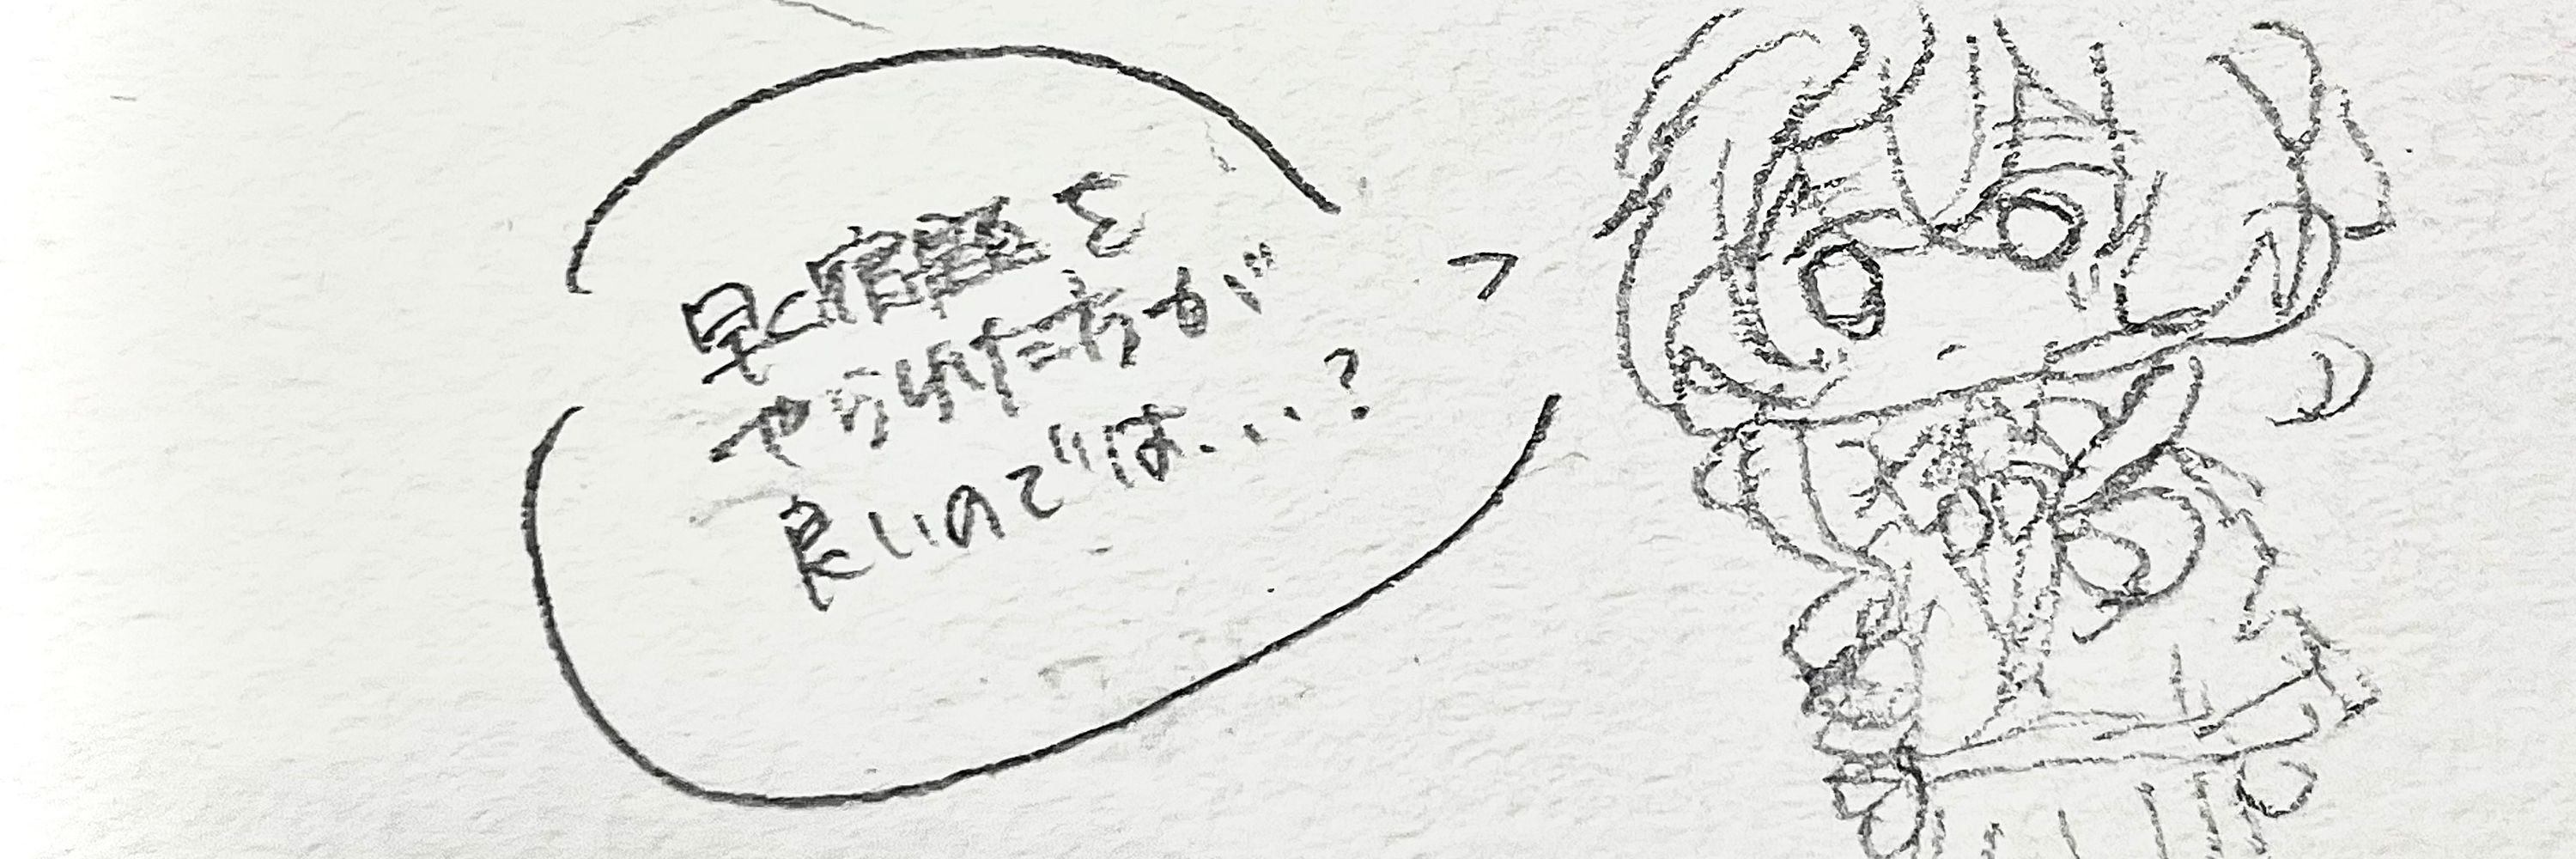 早く宿題を
やらけた方が
良いのでは...?